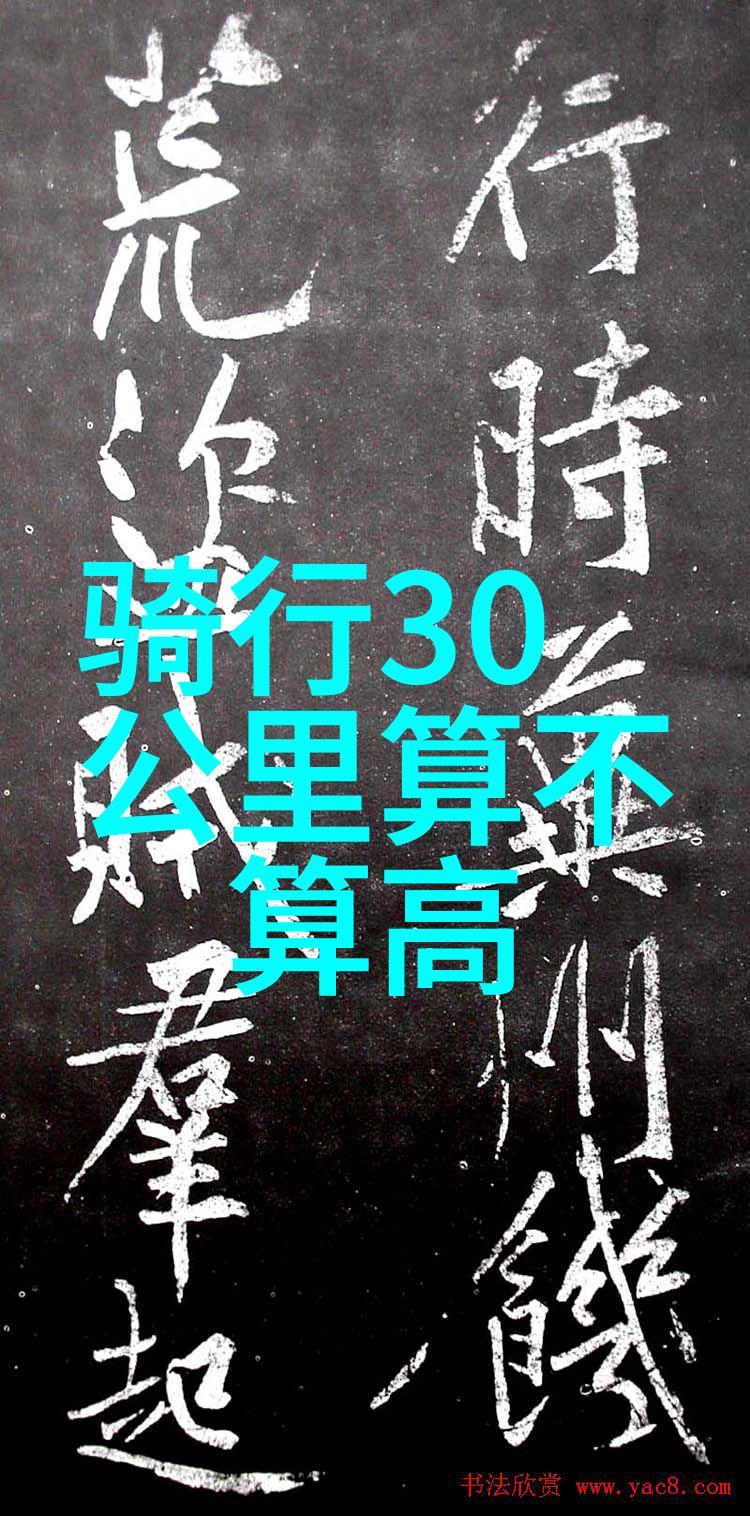 行時州饑
荒盜賊羣起
骑行30
公里算不
算高
书法欣赏 www.yac8.com